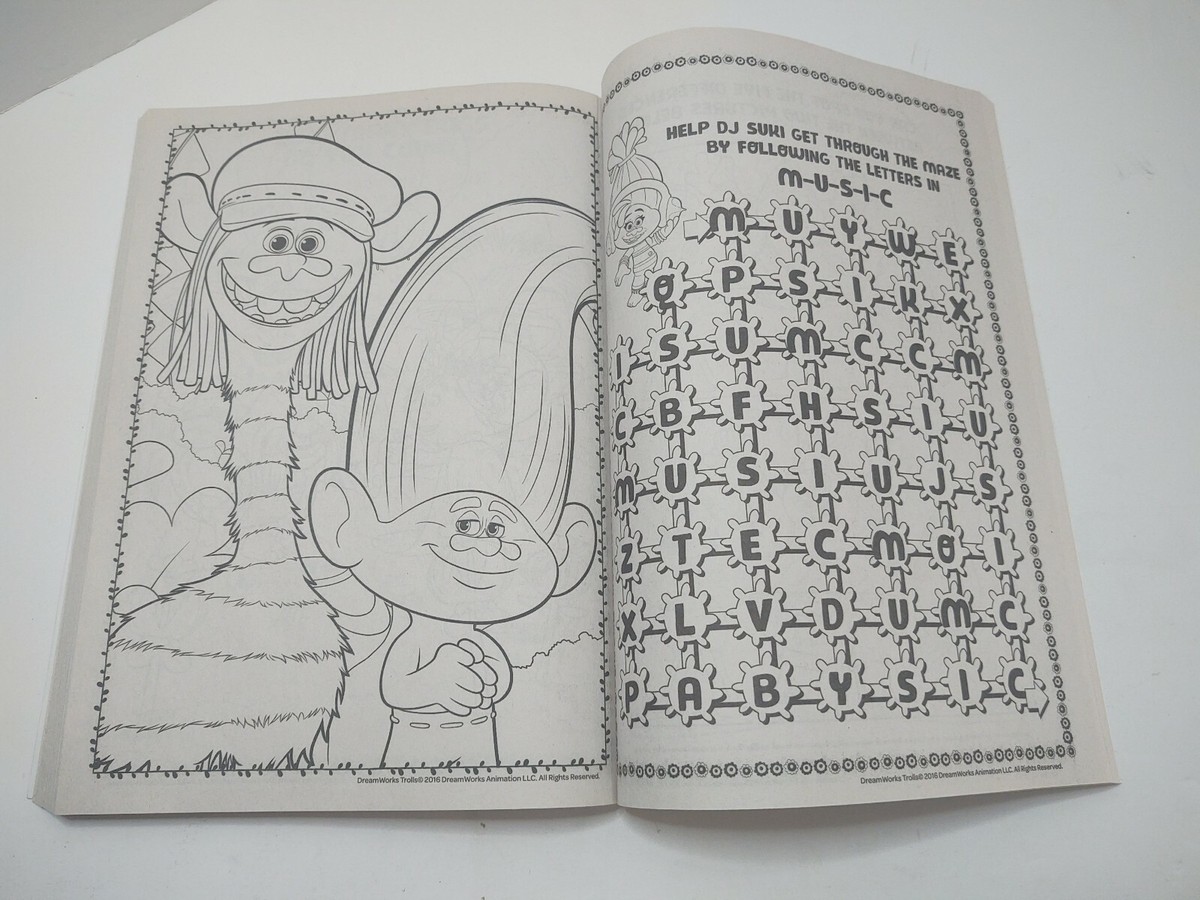 DreamWorks Trolls© 2016 DreamWorks Animation LLC. All Rights Reserved.
HELP DJ SUKI GET THROUGH THE MAZE
BY FOLLOWING THE LETTERS IN
M-U-S-I-C
M U Y W E
Q P S I K X
I S U M C C M
C B F H S I U
M U S I U J S
Z T E C M O I
X L V D U M C
P A B Y S I C
DreamWorks Trolls© 2016 DreamWorks Animation LLC. All Rights Reserved.